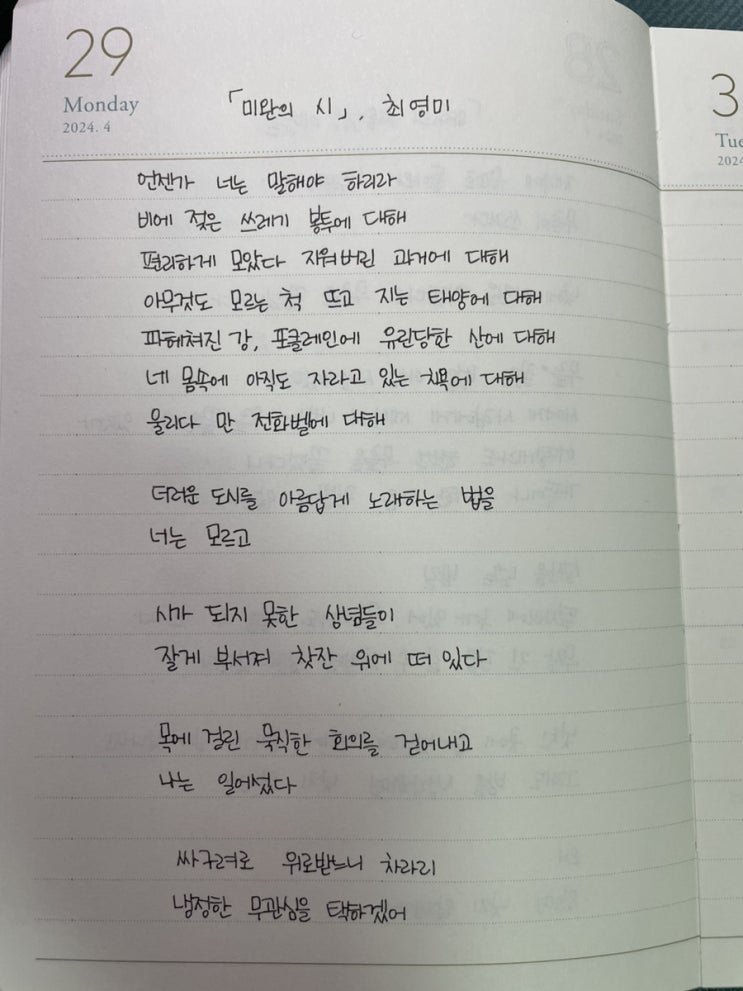 29
Monday
2024. 4
「미완의 시」, 최영미
언젠가 너는 말해야 하리라
비에 젖은 쓰레기 봉투에 대해
편리하게 모았다 지워버린 과거에 대해
아무것도 모르는 척 뜨고 지는 태양에 대해
파헤쳐진 강, 포클레인에 유린당한 산에 대해
네 몸속에 아직도 자라고 있는 치욕에 대해
울리다 만 전화벨에 대해
더러운 도시를 아름답게 노래하는 법을
너는 모르고
시가 되지 못한 상념들이
잘게 부서져 찻잔 위에 떠 있다
목에 걸린 묵직한 회의를 걷어내고
나는 일어섰다
싸구려로 위로받느니 차라리
냉정한 무관심을 택하겠어
3
Tue
2024